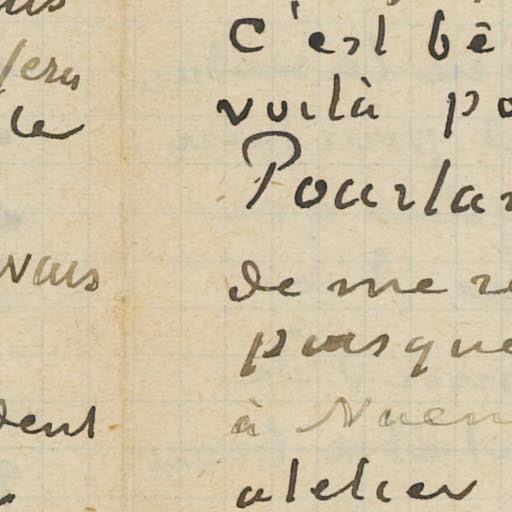 le
vais
dent
C'est bê
voilà po
Pourtan
de me re
puisque
à Nuen
atelier